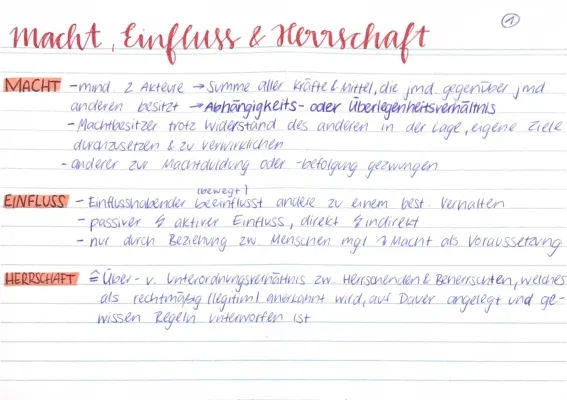 ①
Macht, Einfluss & Herrschaft
MACHT - mind 2 Akteure → Summe aller Kräfte & Mittel, die jmd. gegenüber jmd
anderen besitzt → Abhängigkeits- oder Überlegenheitsverhältnis
- Machtbesitzer trotz Widerstand des anderen in der Lage, eigene Ziele
durchzusetzen & zu verwirklichen
- anderer zur Machtduldung oder -befolgung gezwungen
(bewegt)
EINFLUSS - Einflusshabender beeinflusst andere zu einem best. Verhalten
- passiver ↯ aktiver Einfluss, direkt ↯ indirekt
- nur durch Beziehung zw Menschen mgl → Macht als Voraussetzung
HERRSCHAFT ≙ Über- v. Unterordnungsverhältnis zw. Herrschenden & Beherrschten, welches
als rechtmäßig (legitim) anerkannt wird, auf Dauer angelegt und ge-
wissen Regeln unterworfen ist